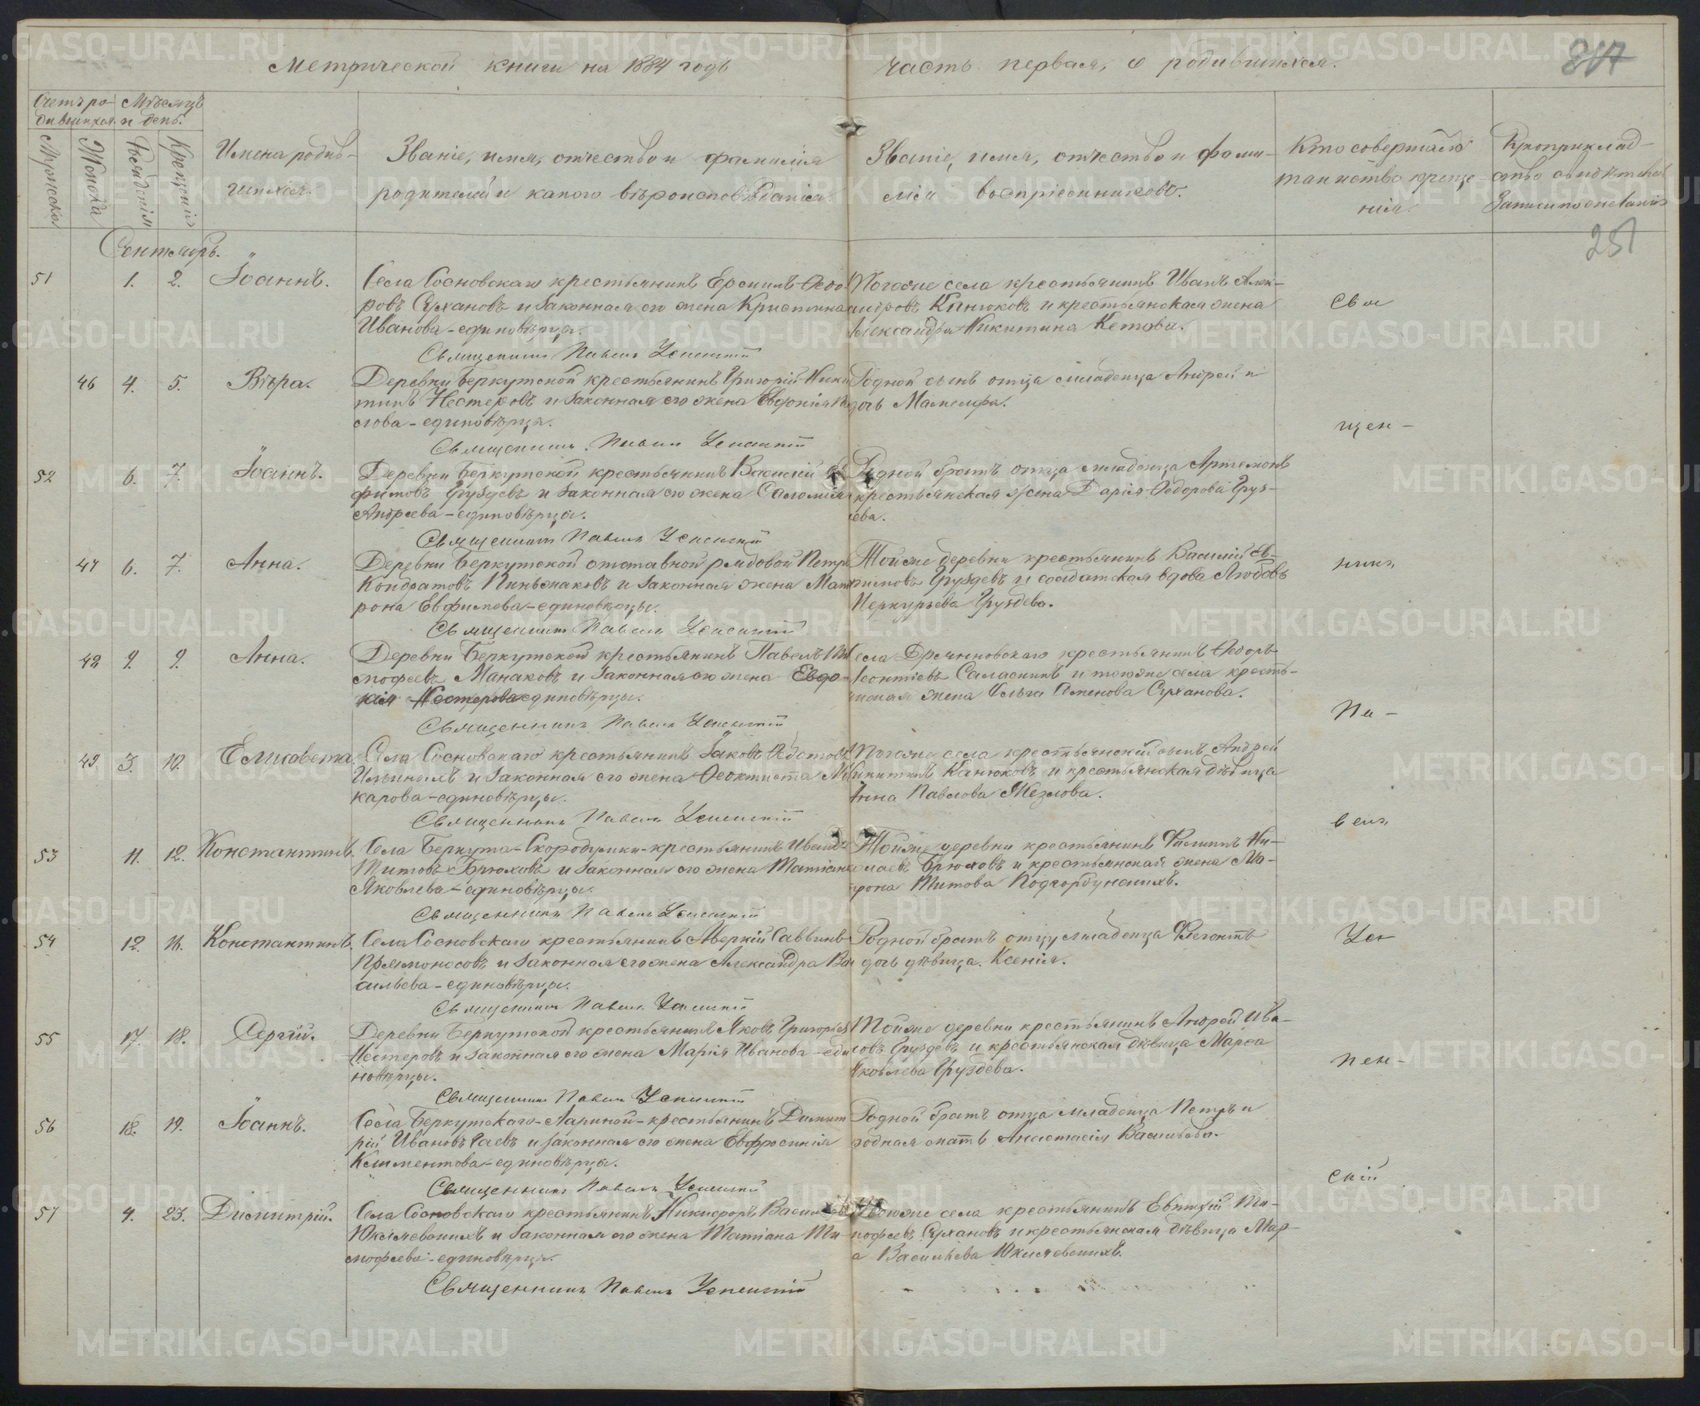 Метрической книги на 1884 годъ
часть первая, о родившихся.
Счетъ ро-
дившихся.
Мѣсяцъ
и день.
Мужеска
Женска
Рожденія
Крещенія
Имена родив-
шихся.
Званіе, имя, отчество и фамилія
родителей и какого вѣроисповѣданія.
Званіе, имя, отчество и фами-
лія воспріемниковъ.
Кто совершалъ
таинство креще-
нія.
Рукоприклад-
ство свидѣтелей
записи по желанію
251
Сентябрь.
51 1. 2. Іоаннъ.
Села Сосновскаго крестьянинъ Ермилъ Ѳедо-
ровъ Сухановъ и законная его жена Христина
Иванова - единовѣрцы.
Священникъ Павелъ Успенскій
Того же села крестьянинъ Иванъ Алек-
андровъ Канюковъ и крестьянская жена
Александра Никитина Кетова.
46 4. 5. Вѣра.
Деревни Беркутской крестьянинъ Григорій Ники
тинъ Нестеровъ и законная его жена Евфимія
единовѣрцы.
Священникъ Павелъ Успенскій
Родной сынъ отца младенца Андрей и
дочь
52 6. 7. Іоаннъ.
Деревни Беркутской крестьянинъ Василій Ев
фимовъ Груздевъ и законная его жена Саломія
Андреева - единовѣрцы.
Священникъ Павелъ Успенскій
Родной братъ отца младенца Артемонъ
крестьянская жена Дарія Ѳедорова Груз-
дева.
47 6. 7. Анна.
Деревни Беркутской отставной рядовой Петръ
Кондратовъ и законная жена Мат
рона Евфимова - единовѣрцы.
Священникъ Павелъ Успенскій
Той же деревни крестьянинъ Василій Ев-
фимовъ Груздевъ и солдатская вдова Любовь
Меркурьева Груздева.
48 9. 9. Анна.
Деревни Беркутской крестьянинъ Павелъ Ти
мофеевъ Манаковъ и законная его жена Евдо-
кія Нестерова единовѣрцы.
Священникъ Павелъ Успенскій
села крестьянинъ Ѳедоръ
Леонтіевъ и того же села кресть-
янская жена Ольга Суханова.
49 3. 10. Елисавета.
Села Сосновскаго крестьянинъ Іаковъ
Ильиныхъ и законная его жена Ѳеоктиста Ма
карова - единовѣрцы.
Священникъ Павелъ Успенскій
Того же села крестьянскій сынъ Андрей
Никитинъ Канюковъ и крестьянская дѣвица
Анна Павлова
53 11. 12. Константинъ.
Села Беркута - Скородумки - крестьянинъ Иванъ
Титовъ Брюховъ и законная его жена Татіана
Яковлева - единовѣрцы.
Священникъ Павелъ Успенскій
Той же деревни крестьянинъ Филиппъ Ни-
колаевъ Брюховъ и крестьянская жена Ма-
трона Титова Подгорбунскихъ.
54 12. 16. Константинъ.
Села Сосновскаго крестьянинъ Аверкій Саввинъ
Прямоносовъ и законная его жена Александра Ва
сильева - единовѣрцы.
Священникъ Павелъ Успенскій
Родной братъ отцу младенца
дочь дѣвица Ксенія.
55 17. 18. Сергій.
Деревни Беркутской крестьянинъ Яковъ Григорьевъ
Нестеровъ и законная его жена Марія Иванова - еди
новѣрцы.
Священникъ Павелъ Успенскій
Той же деревни крестьянинъ Андрей Ива-
новъ Груздевъ и крестьянская дѣвица Марѳа
Яковлева Груздева.
56 18. 19. Іоаннъ.
Села Беркутскаго - Лариной - крестьянинъ Димит
рій Ивановъ и законная его жена Евфросинія
Климентова - единовѣрцы.
Священникъ Павелъ Успенскій
Родной братъ отца младенца Петръ и
родная мать Анастасія Васильева.
57 4. 23. Димитрій.
Села Сосновскаго крестьянинъ Никифоръ Василь
и законная его жена Татіана Ти-
мофеева - единовѣрцы.
Священникъ Павелъ Успенскій
Того же села крестьянинъ Евтихій Ти-
мофеевъ Сухановъ и крестьянская дѣвица Мар-
а Васильева
Свя
щен-
никъ
Па-
велъ
Ус
пен-
скій
METRIKI.GASO-URAL.RU